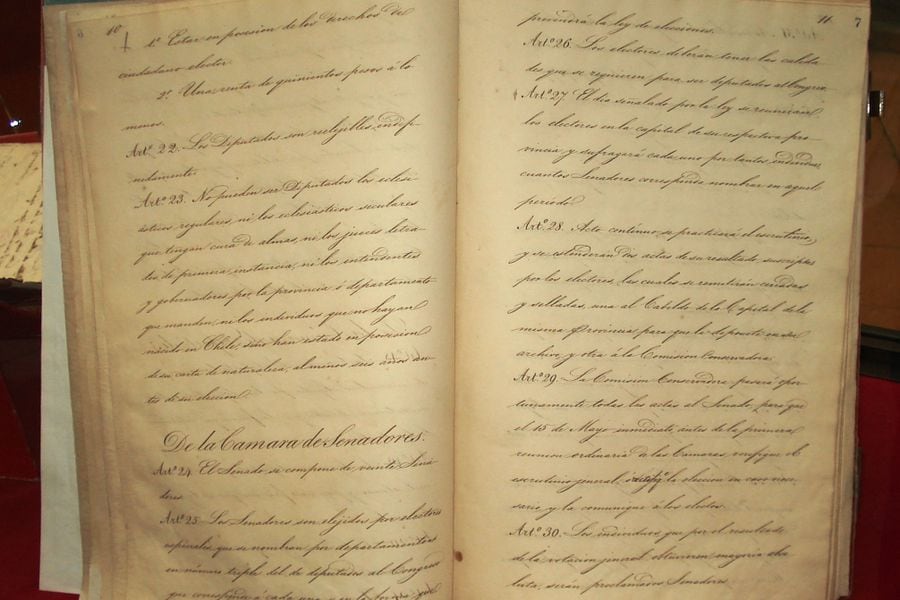 10
1º Estar en posesion de los derechos de
ciudadano elector.
2º Una renta de quinientos pesos á lo
menos.
Artº 22. Los Diputados son reelejibles indefi-
nidamente.
Artº 23. No pueden ser Diputados los eclesi-
ásticos regulares, ni los eclesiásticos seculares
que tengan cura de almas, ni los jueces letra-
dos de primera instancia, ni los intendentes
y gobernadores por la provincia ó departamento
que manden, ni los individuos que no hayan
nacido en Chile, sino han estado en posesion
de su carta de naturaleza, al menos seis años an-
tes de su eleccion.
De la Camara de Senadores.
Artº 24. El Senado se compone de veinte Sena-
dores.
Artº 25. Los Senadores son elejidos por electores
especiales, que se nombran por departamentos
en número triple del de diputados al Congreso
que corresponde á cada uno, y en la forma que
11 7
prevendrá la ley de elecciones.
Artº 26. Los electores deberán tener las calida-
des que se requieren para ser diputados al Congreso.
Artº 27. El dia señalado por la ley se reuniran
los electores en la capital de su respectiva pro-
vincia y sufragará cada uno por tantos individuos,
cuantos Senadores corresponda nombrar en aquel
periodo.
Artº 28. Acto contínuo se practicará el escrutinio,
y se estenderán dos actas de su resultado, suscriptas
por los electores, las cuales se remitirán cerradas
y selladas, una al Cabildo de la Capital de la
misma Provincia para que la deposite en su
archivo, y otra á la Comision Conservadora.
Artº 29. La Comision Conservadora pasará opor-
tunamente todas las actas al Senado, para que
el 15 de Mayo inmediato, antes de la primera
reunion ordinaria de las Cámaras, verifique el
escrutinio jeneral, rectifiqᵉ la eleccion en caso nece-
sario y la comunique á los electos.
Artº 30. Los individuos, que por el resultado
de la votacion jeneral obtuvieren mayoría abso-
luta, serán proclamados Senadores